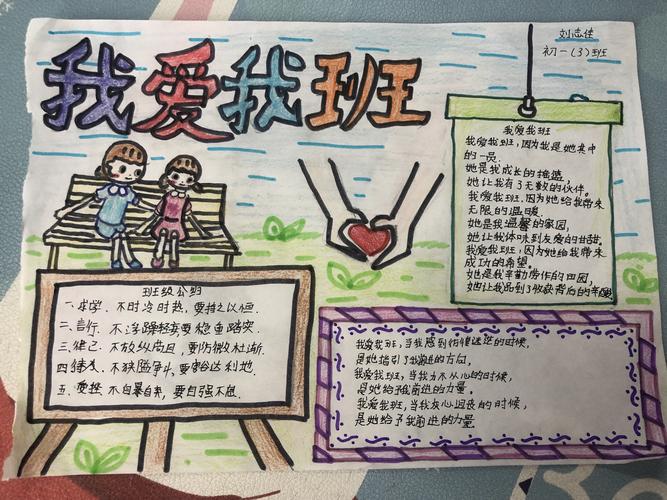 我爱我班
刘志佳
初一(3)班
我爱我班
我爱我班,因为我是她其中
的一员。
她是我成长的摇篮,
她让我有了无数的伙伴。
我爱我班,因为她给我带来
无限的温暖。
她是我温馨的家园,
她让我体味到友爱的甘甜。
我爱我班,因为她给我带来
成功的希望。
她是我辛勤劳作的田园,
她让我品到了收获背后的辛酸
班级公约
一、求学. 不时冷时热,要持之以恒.
二、言行. 不浮躁轻率要稳重踏实.
三、律己. 不放纵苟且,要防微杜渐.
四 不狭隘争斗,要豁达利他.
五. 不自暴自弃,要自强不息.
我爱我班,当我感到彷徨迷茫的时候,
是她指引了我前进的方向。
我爱我班,当我力不从心的时候,
是她给予我前进的力量。
我爱我班,当我灰心沮丧的时候,
是她给予我前进的力量